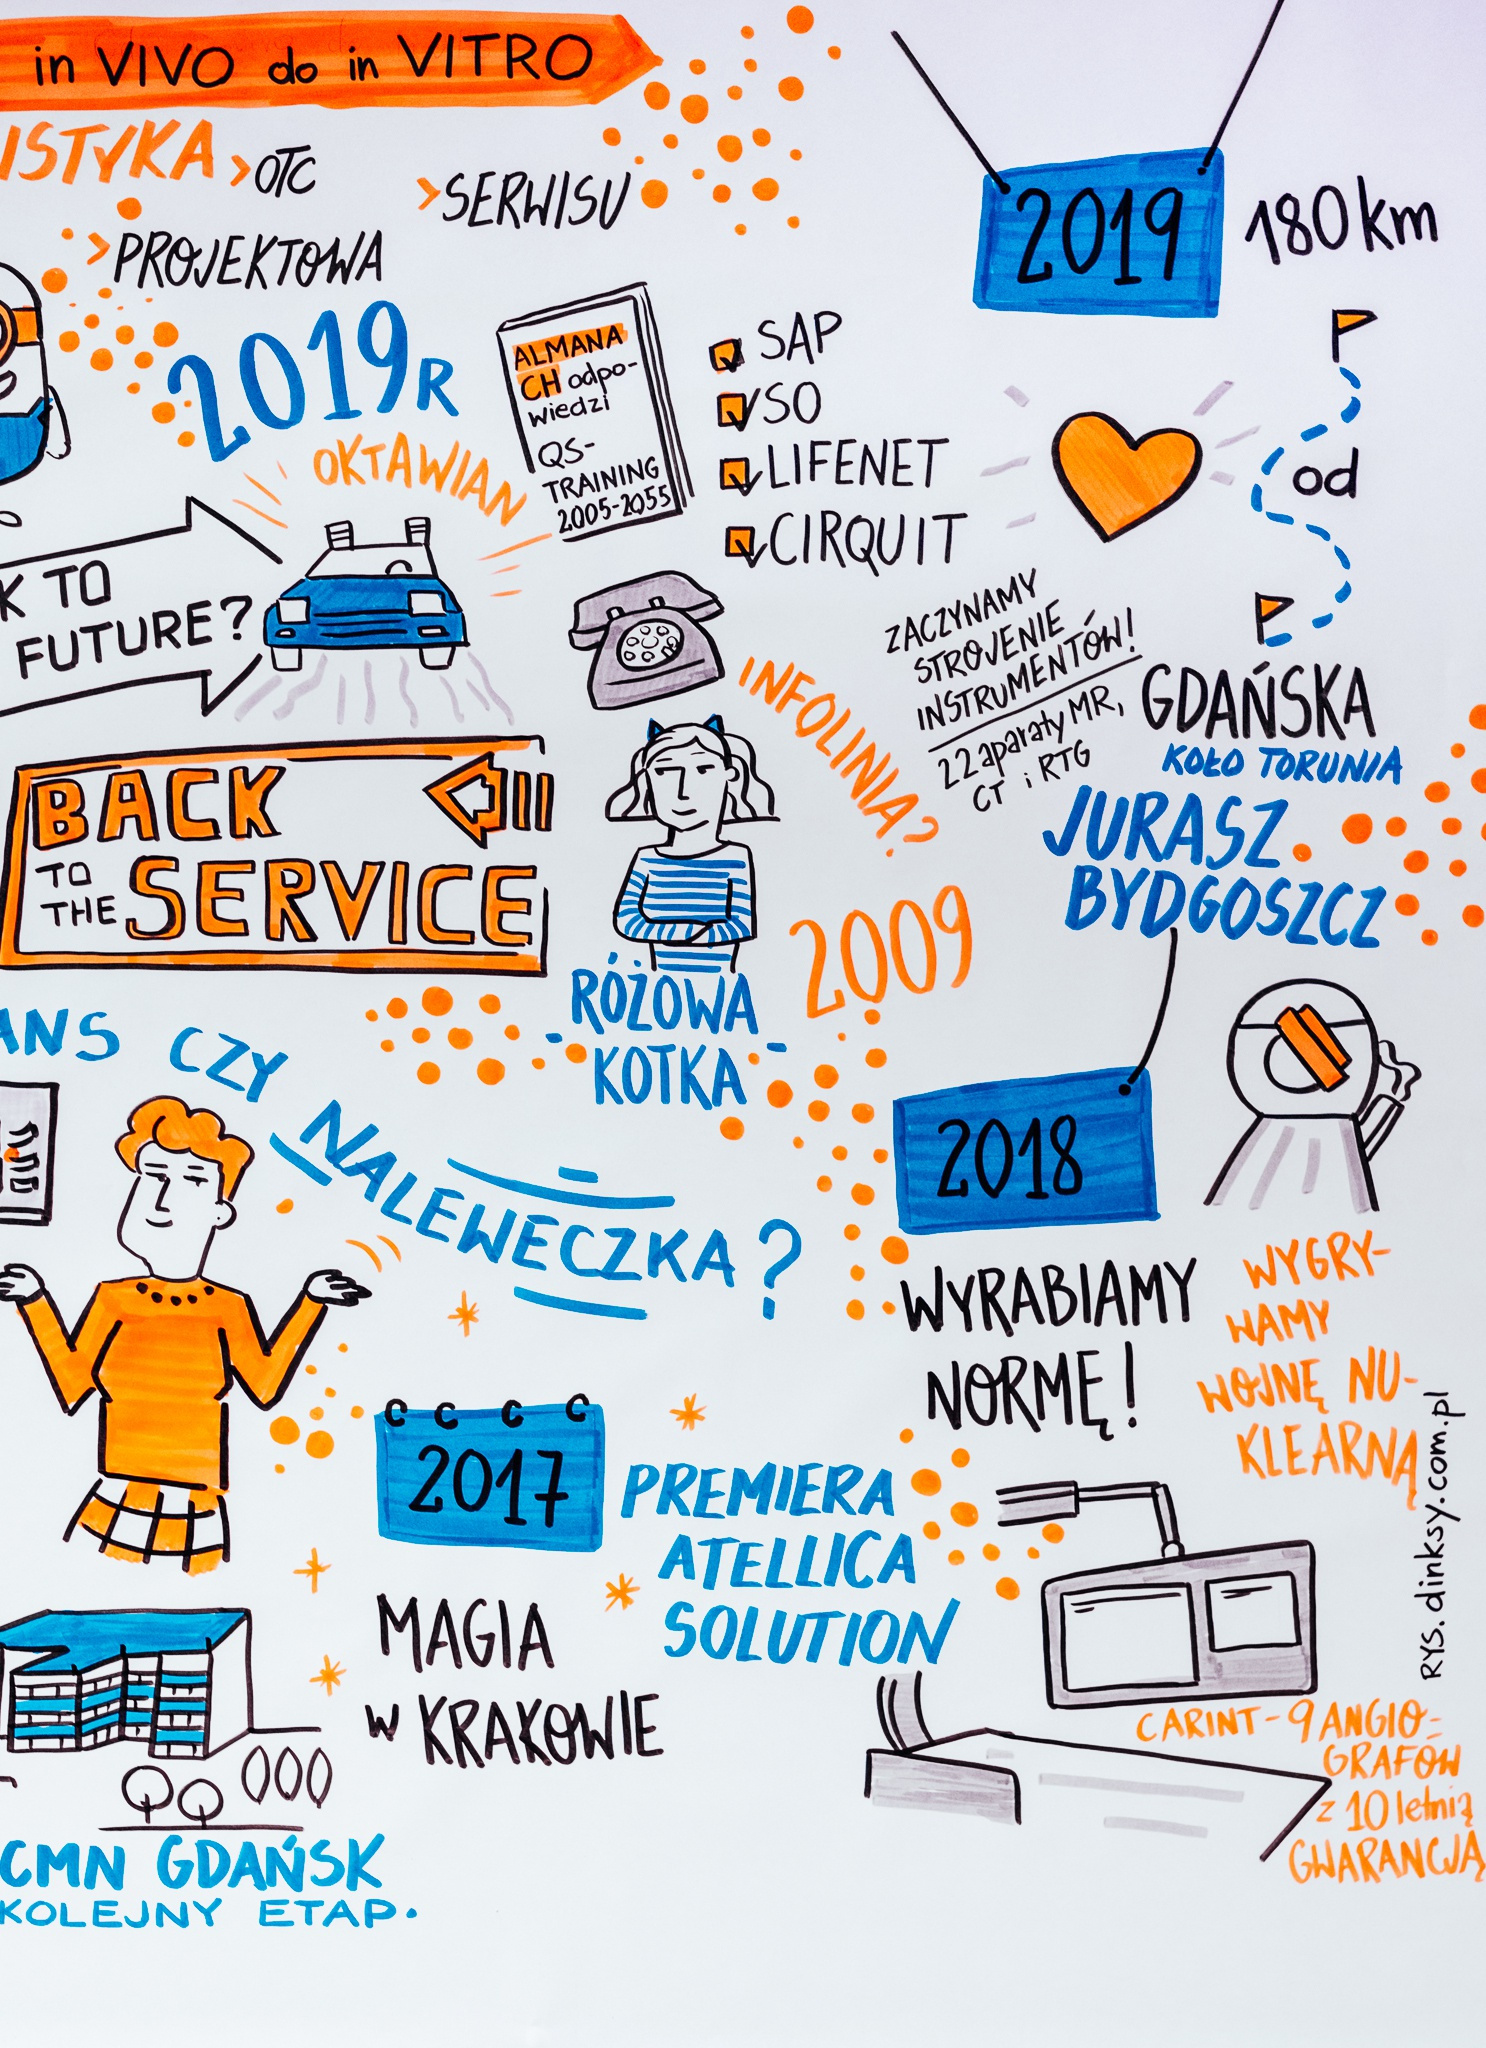 in VIVO do in VITRO
ISTYKA
> OTC
> SERWISU
> PROJEKTOWA
2019R
OKTAWIAN
ALMANA
CH odpo-
wiedzi
QS-
TRAINING
2005-2055
SAP
SO
LIFENET
CIRQUIT
K TO
FUTURE?
BACK
TO
THE SERVICE
INFOLINIA?
2009
RÓŻOWA
KOTKA
2019
180 km
od
GDAŃSKA
KOŁO TORUNIA
ZACZYNAMY
STROJENIE
INSTRUMENTÓW!
22 aparaty MR,
CT i RTG
JURASZ
BYDGOSZCZ
2018
WYRABIAMY
NORMĘ!
WYGRY-
WAMY
WOJNĘ NU-
KLEARNĄ
ANS CZY
NALEWECZKA?
2017
PREMIERA
ATELLICA
SOLUTION
MAGIA
w KRAKOWIE
CMN GDAŃSK
KOLEJNY ETAP.
CARINT - 9 ANGIO-
GRAFÓW
z 10 letnią
GWARANCJĄ
RYS. dinksy.com.pl